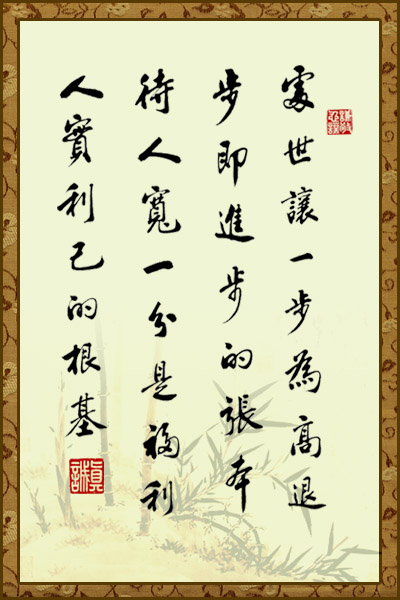 處世讓一步為高退
步即進步的張本
待人寬一分是福利
人實利己的根基
真誠